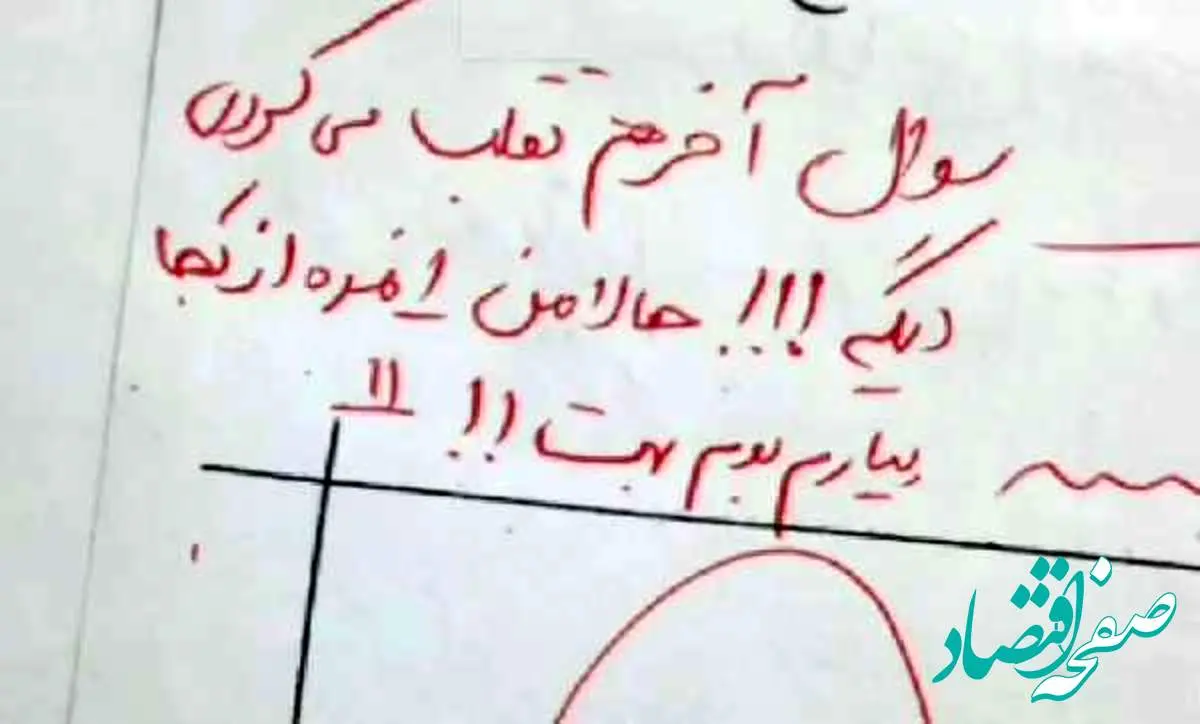 سوال آخر هم تقلب می‌کردی
دیگه !!! حالا من ۱ نمره از کجا
بیارم بدم بهت !!
صفحه اقتصاد